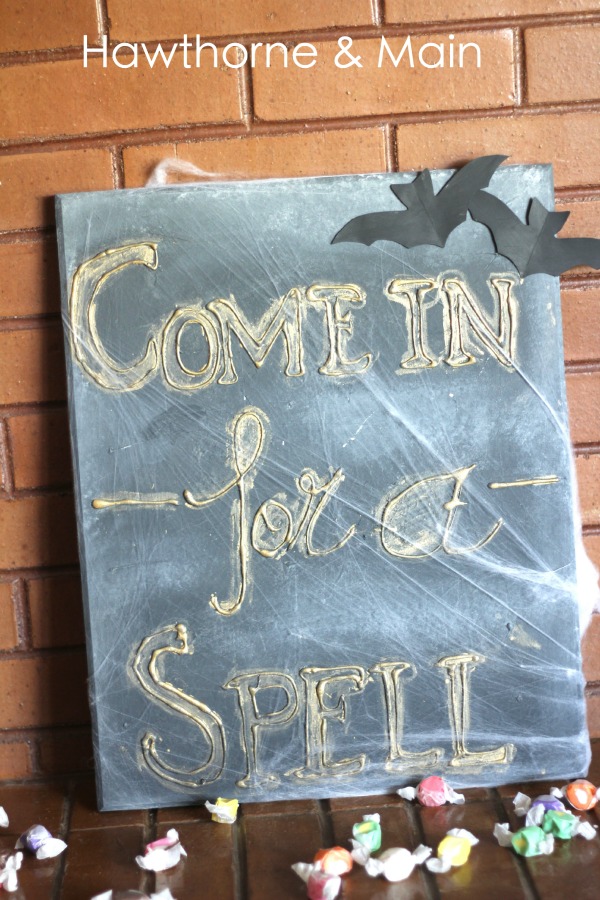 Hawthorne & Main
COME IN
- for a -
SPELL